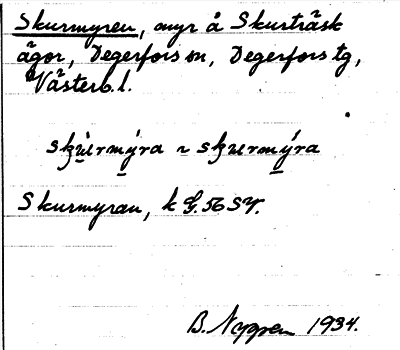 Skurmyren, myr å Skurträsk
ägor, Degerfors sn, Degerfors tg,
Västerb. l.
Skurmyran, k G. 56 SV.
B. Nygren 1934.